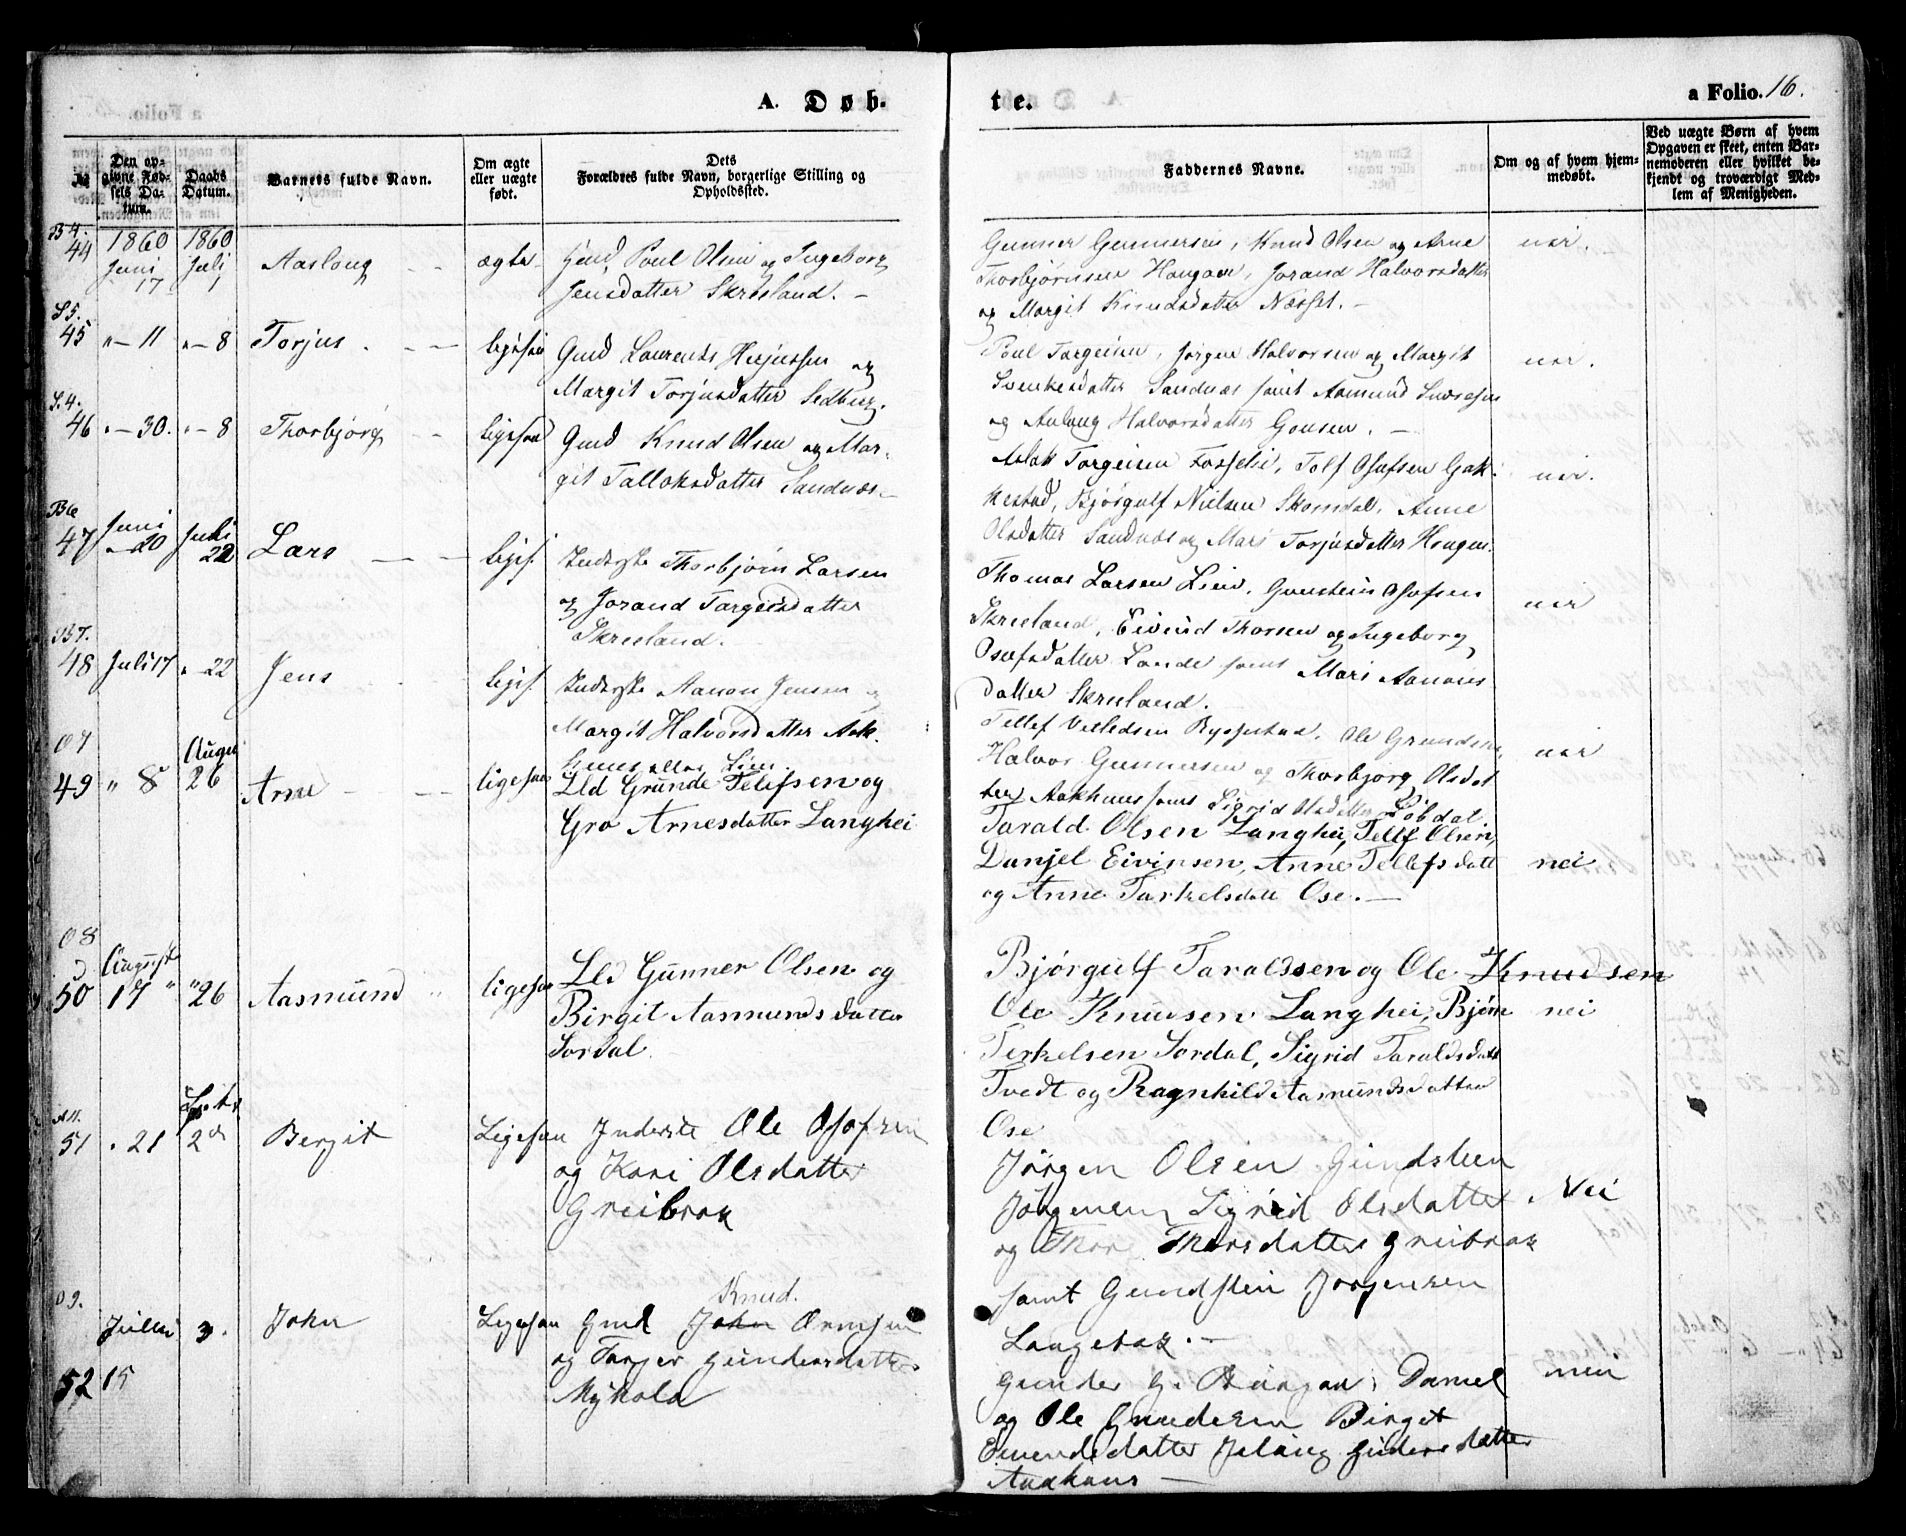 A. Døb-
te.
a Folio. 16.
No
Den op-
givne Fød-
sels Da-
tum.
Daabs
Datum.
Barnets fulde Navn.
Om ægte
eller uægte
født.
Dets
Forældres fulde Navn, borgerlige Stilling og
Opholdssted.
Faddernes Navne.
Om og af hvem hjem-
medøbt.
Ved uægte Børn af hvem
Opgaven er skeet, enten Bar-
nemoderen eller hvilket be-
kjendt og troværdigt Med-
lem af Menigheden.
B 4.
44 1860 Juni 17 1860 Juli 1 Aaslaug ægte
Poul Olsen og Ingeborg
Jensdatter Skreeland.
Gunner Gunnersen, Knud Olsen og Arne
Thorbjørnsen Haugaen, Jorand Halvorsdatter
og Margit Knudsdatter Næsset.
nei.
S 5.
45 " 11 " 8 Torjus ligesaa
Gmd Laurents Herjussen og
Margit Torjusdatter Sedberg.
Poul Targeisen, Jørgen Halvorsen og Margit
Svenkesdatter Sandnæs samt Aasmund
og Aslaug Halvorsdatter Gousen.
nei.
S. 4.
46 " 30. " 8 Thorbjørg ligesaa
Gmd Knud Olsen og Mar-
git Tallaksdatter Sandnæs
Aslak Torgeisen Fosselie, Tolf Osofsen Gak-
kestad, Bjørgulf Nielsen Skomdal, Anne
Olsdatter Sandnæs og Mari Torjusdatter Haugen.
nei.
B 6
47 Juni 20 Juli 22 Lars liges.
Inderste Thorbjørn Larsen
og Jorand Targeisdatter
Skreeland.
Thomas Larsen Lien, Gunstein Osofsen
Skreeland, Eivind Thorsen og Ingeborg
Osufsdatter Lande samt Mari Aanons
datter Skreeland.
nei
B 7.
48 Juli 17 " 22 Jens liges.
Inderste Aanon Jensen og
Margit Halvorsdatter Aak-
huus eller Lien.
Tellef Velledsen Rygnestad, Ole Grundesen,
Halvor Gunnersen og Thorbjørg Olsdat
ter Aakhuus samt Sigrid Olsdatter Løbdal.
nei
O 7
49 " 8 August 26 Arne ligesaa
Lld Grunde Telefsen og
Gro Arnesdatter Langhei
Tarald Olsen Langhei, Tellf Olsen,
Danjel Eivinsen, Anne Tellefsdatt
og Anne Tarkelsdatt Ose.
nei
O 8
50 August 17 " 26 Aasmund ligesaa
Lld Gunner Olsen og
Birgit Aasmundsdatter
Sordal
Bjørgulf Taraldssen og Ole Knudsen
Ole Knudsen Langhei, Bjørn
Terkelsen Sordal, Sigrid Taraldsdatt
Tvedt og Ragnhild Aasmundsdatter
Ose
nei
51 " 21 Sept 2 Bergit Ligesaa
Inderste Ole Osofsen
og Kari Olsdatter
Greibrok
Jörgen Olsen Gundsteen
Jörgensen Sigrid Olsdatter
og Thore Thorsdatter Greibrok
samt Gundsten Jorgensen
Langebak.
Nei
O 9.
52 Julli 15 3. John Ligesaa
Knud.
Gmd John Ormsen
og Targer Gundersdatter
Mykola
Gunder G. , Daniel
og Ole Gundersen Birget
Eivendsdatter Gundersdatter
Aadhaus
nei